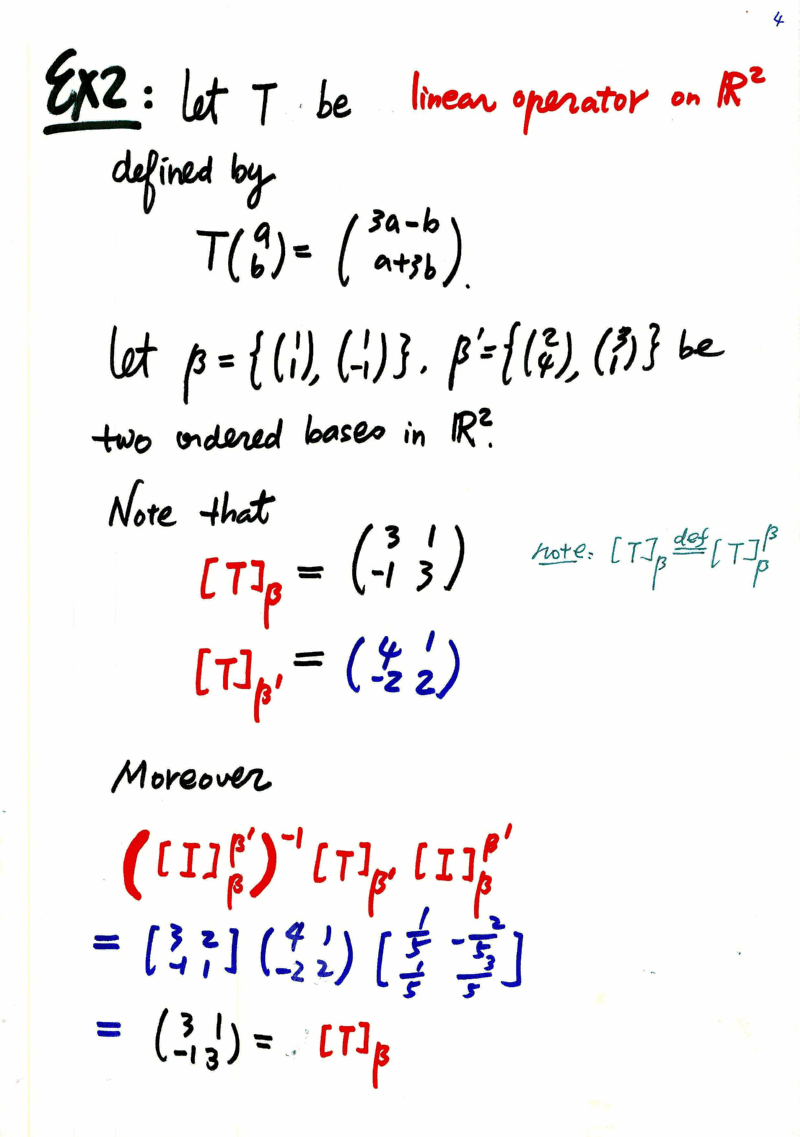 4
Ex2: let T be linear operator on ℝ²
defined by
T(a b) = (3a-b a+3b).
let β = {(1 1), (1 -1)}. β' = {(2 4), (3 1)} be
two ordered bases in ℝ².
Note that
[T]_β = (3 1 -1 3) note: [T]_β def= [T]_β^β
[T]_β' = (4 1 -2 2)
Moreover
([I]_β^β')^-1 [T]_β' [I]_β^β'
= [3 2 -1 1] (4 1 -2 2) [1/5 -2/5 1/5 3/5]
= (3 1 -1 3) = [T]_β